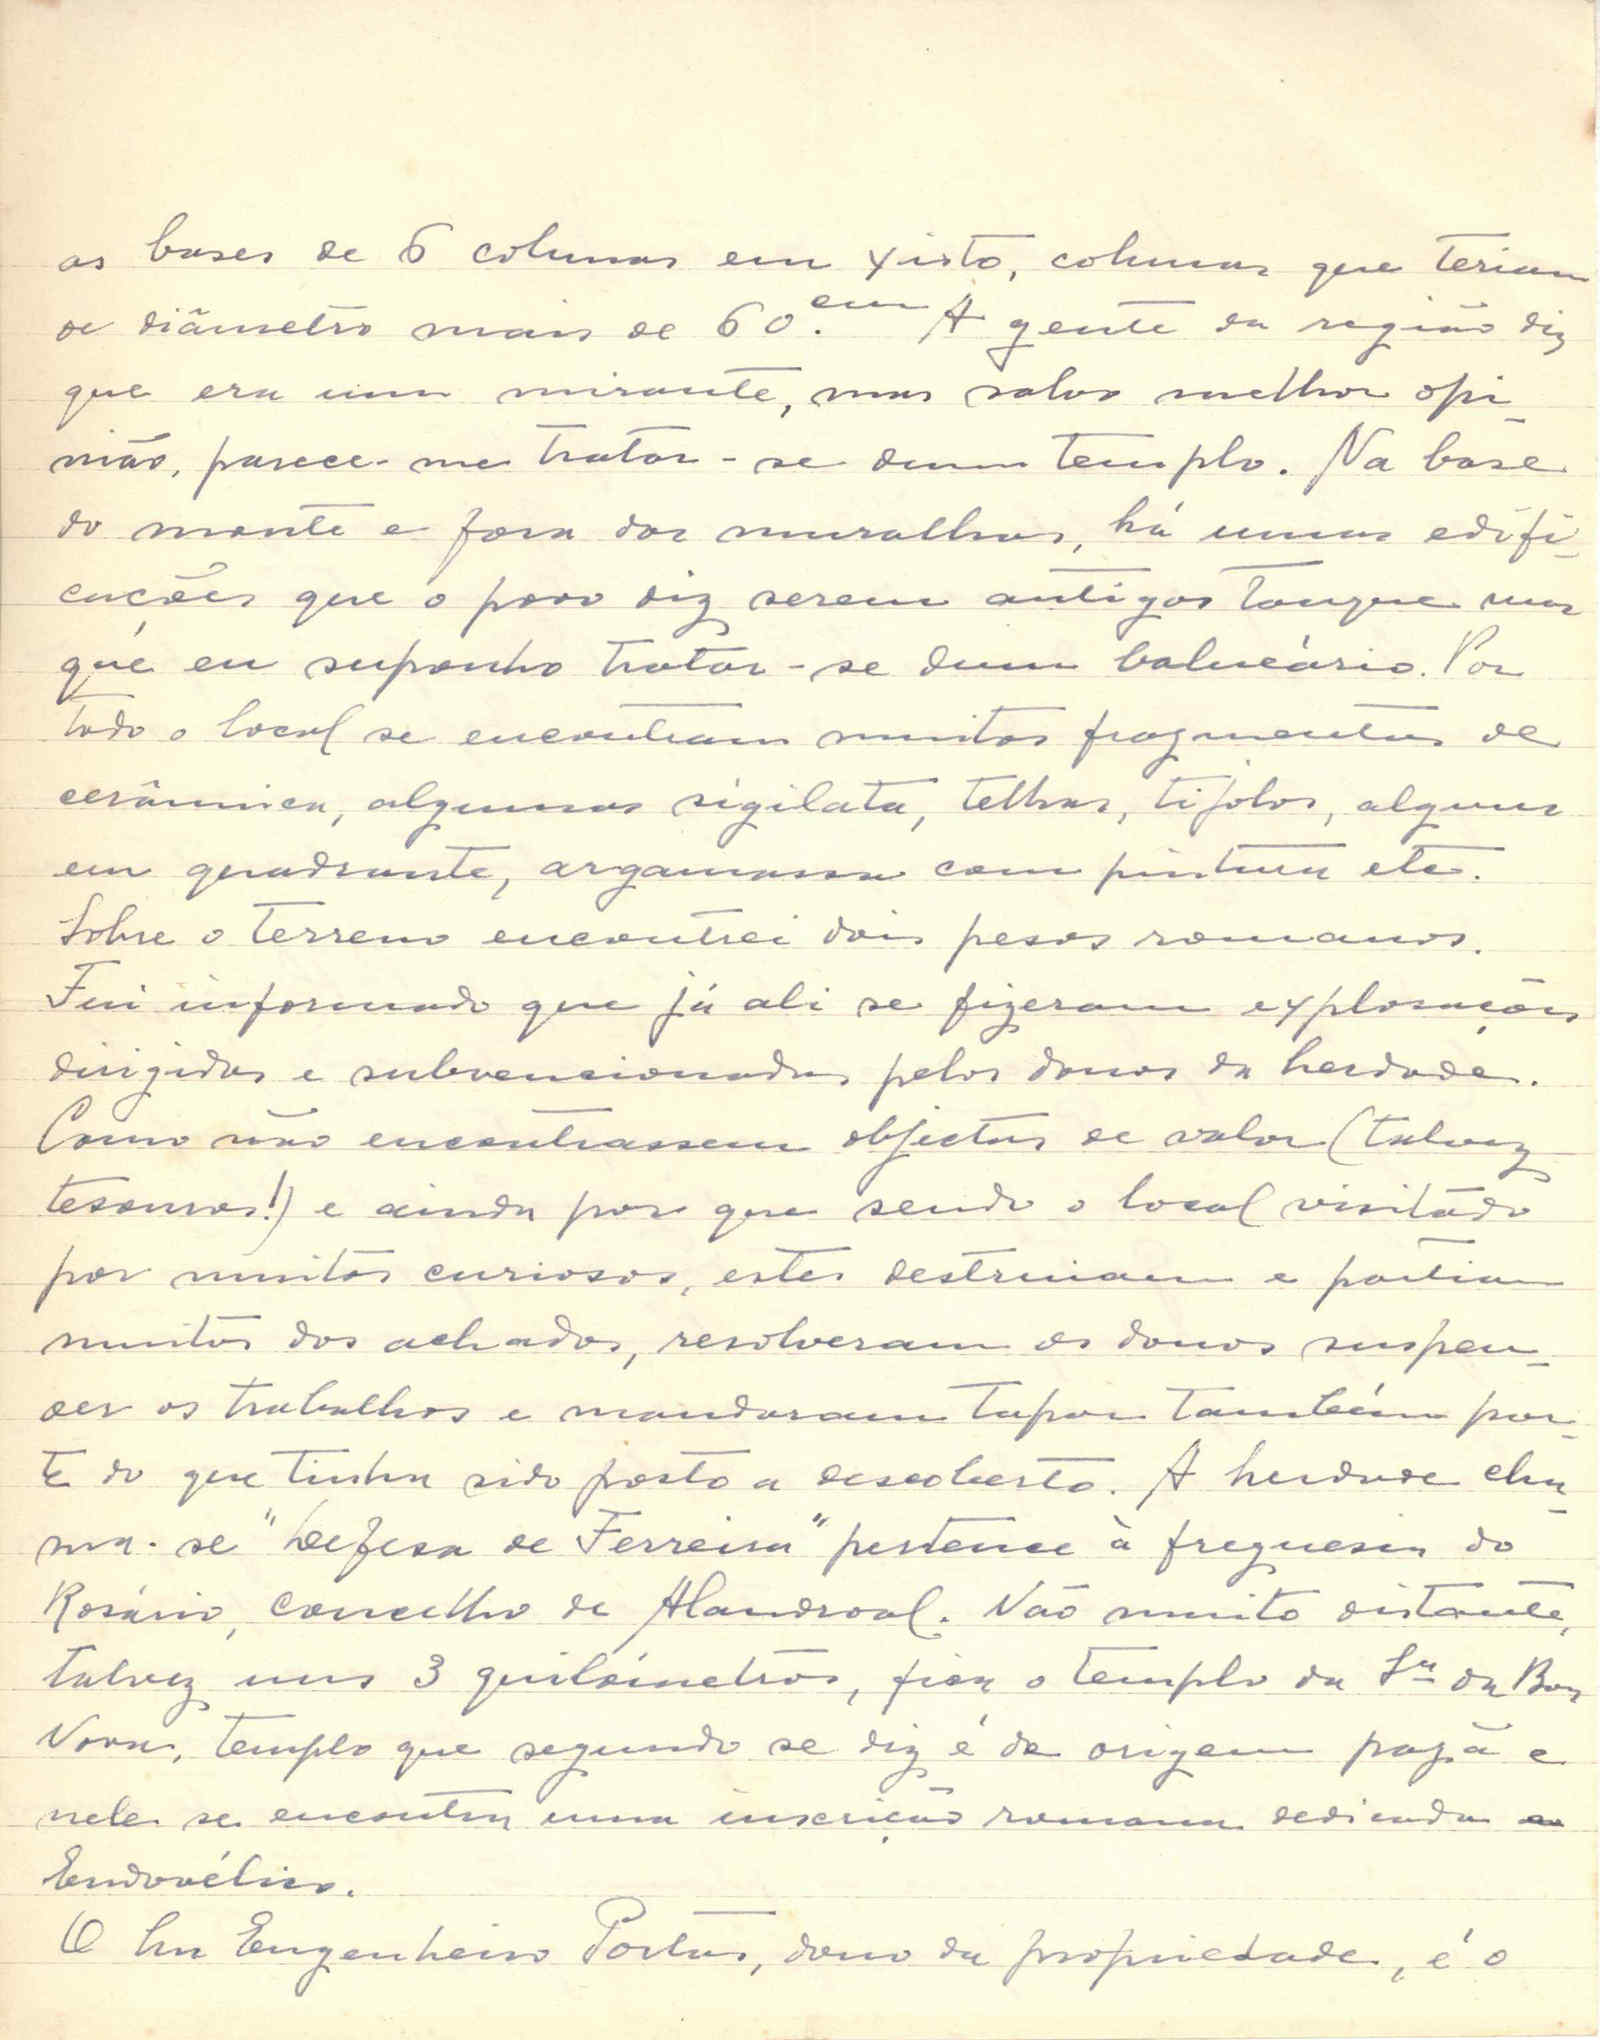 as bases de 6 colunas em xisto, colunas que teriam
de diâmetro mais de 60.cm A gente da região diz
que era um mirante, mas salvo melhor opi-
nião, parece-me tratar-se dum templo. Na base
do monte e fora das muralhas, há umas edifi-
cações que o povo diz serem antigos tanque mas
que eu suponho tratar-se dum balneário. Por
todo o local se encontram muitos fragmentos de
cerâmica, algumas sigilata, telhas, tijolos, alguns
em quadrante, argamassa com pintura etc.
Sobre o terreno encontrei dois pesos romanos.
Fui informado que já ali se fizeram explorações
dirigidas e subvencionadas pelos donos da herdade.
Como não encontrassem objectos de valor (talvez
tesouros!) e ainda por que sendo o local visitado
por muitos curiosos, estes destruiam e partiam
muitos dos achados, resolveram os donos suspen-
der os trabalhos e mandaram tapar também par-
te do que tinha sido posto a descoberto. A herdade cha-
ma-se "Defesa de Ferreira" pertence à freguesia do
Rosário, concelho de Alandroal. Não muito distante,
talvez uns 3 quilómetros, fica o templo da Sra da Boa
Nova, templo que segundo se diz é de origem pagã e
nele se encontra uma inscrição romana dedicada ao
Endovélico.
O Snr Engenheiro Portas, dono da propriedade, é o